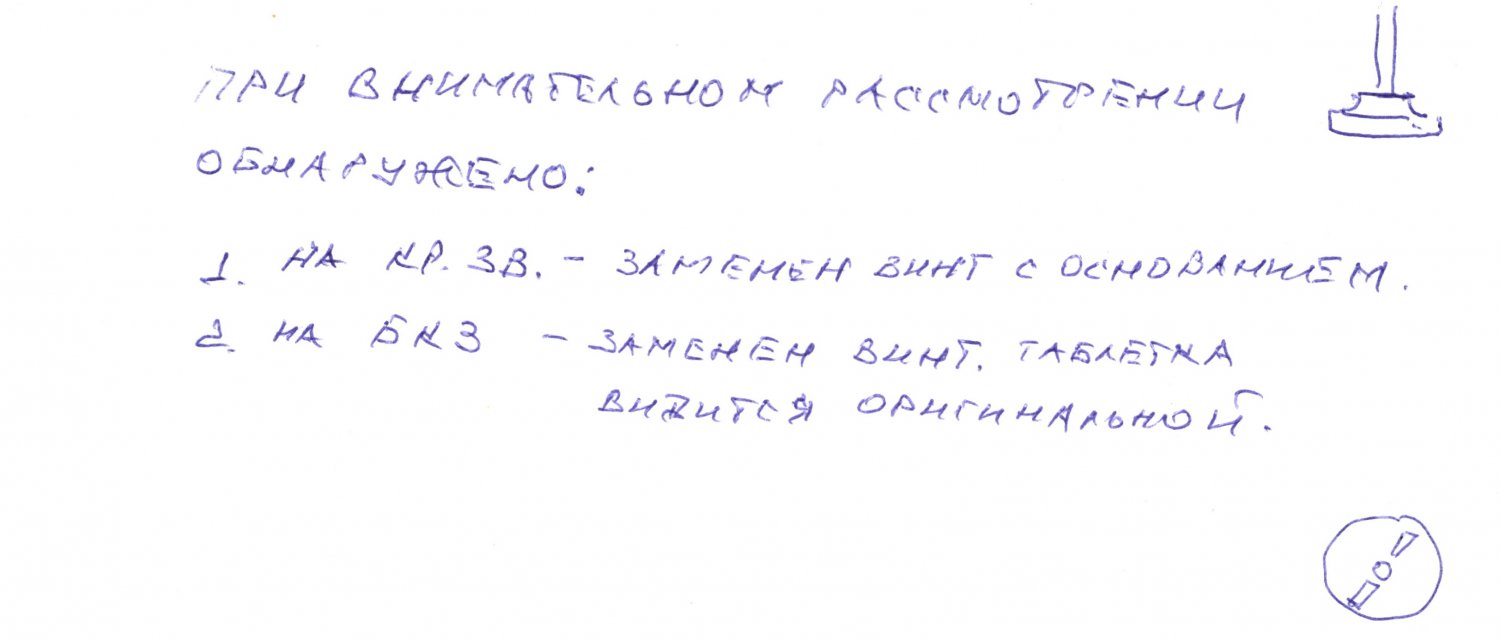 ПРИ ВНИМАТЕЛЬНОМ РАССМОТРЕНИИ
ОБНАРУЖЕНО:
1. НА КР. ЗВ. - ЗАМЕНЕН ВИНТ С ОСНОВАНИЕМ.
2. НА БКЗ - ЗАМЕНЕН ВИНТ. ТАБЛЕТКА
ВИДИТСЯ ОРИГИНАЛЬНОЙ.